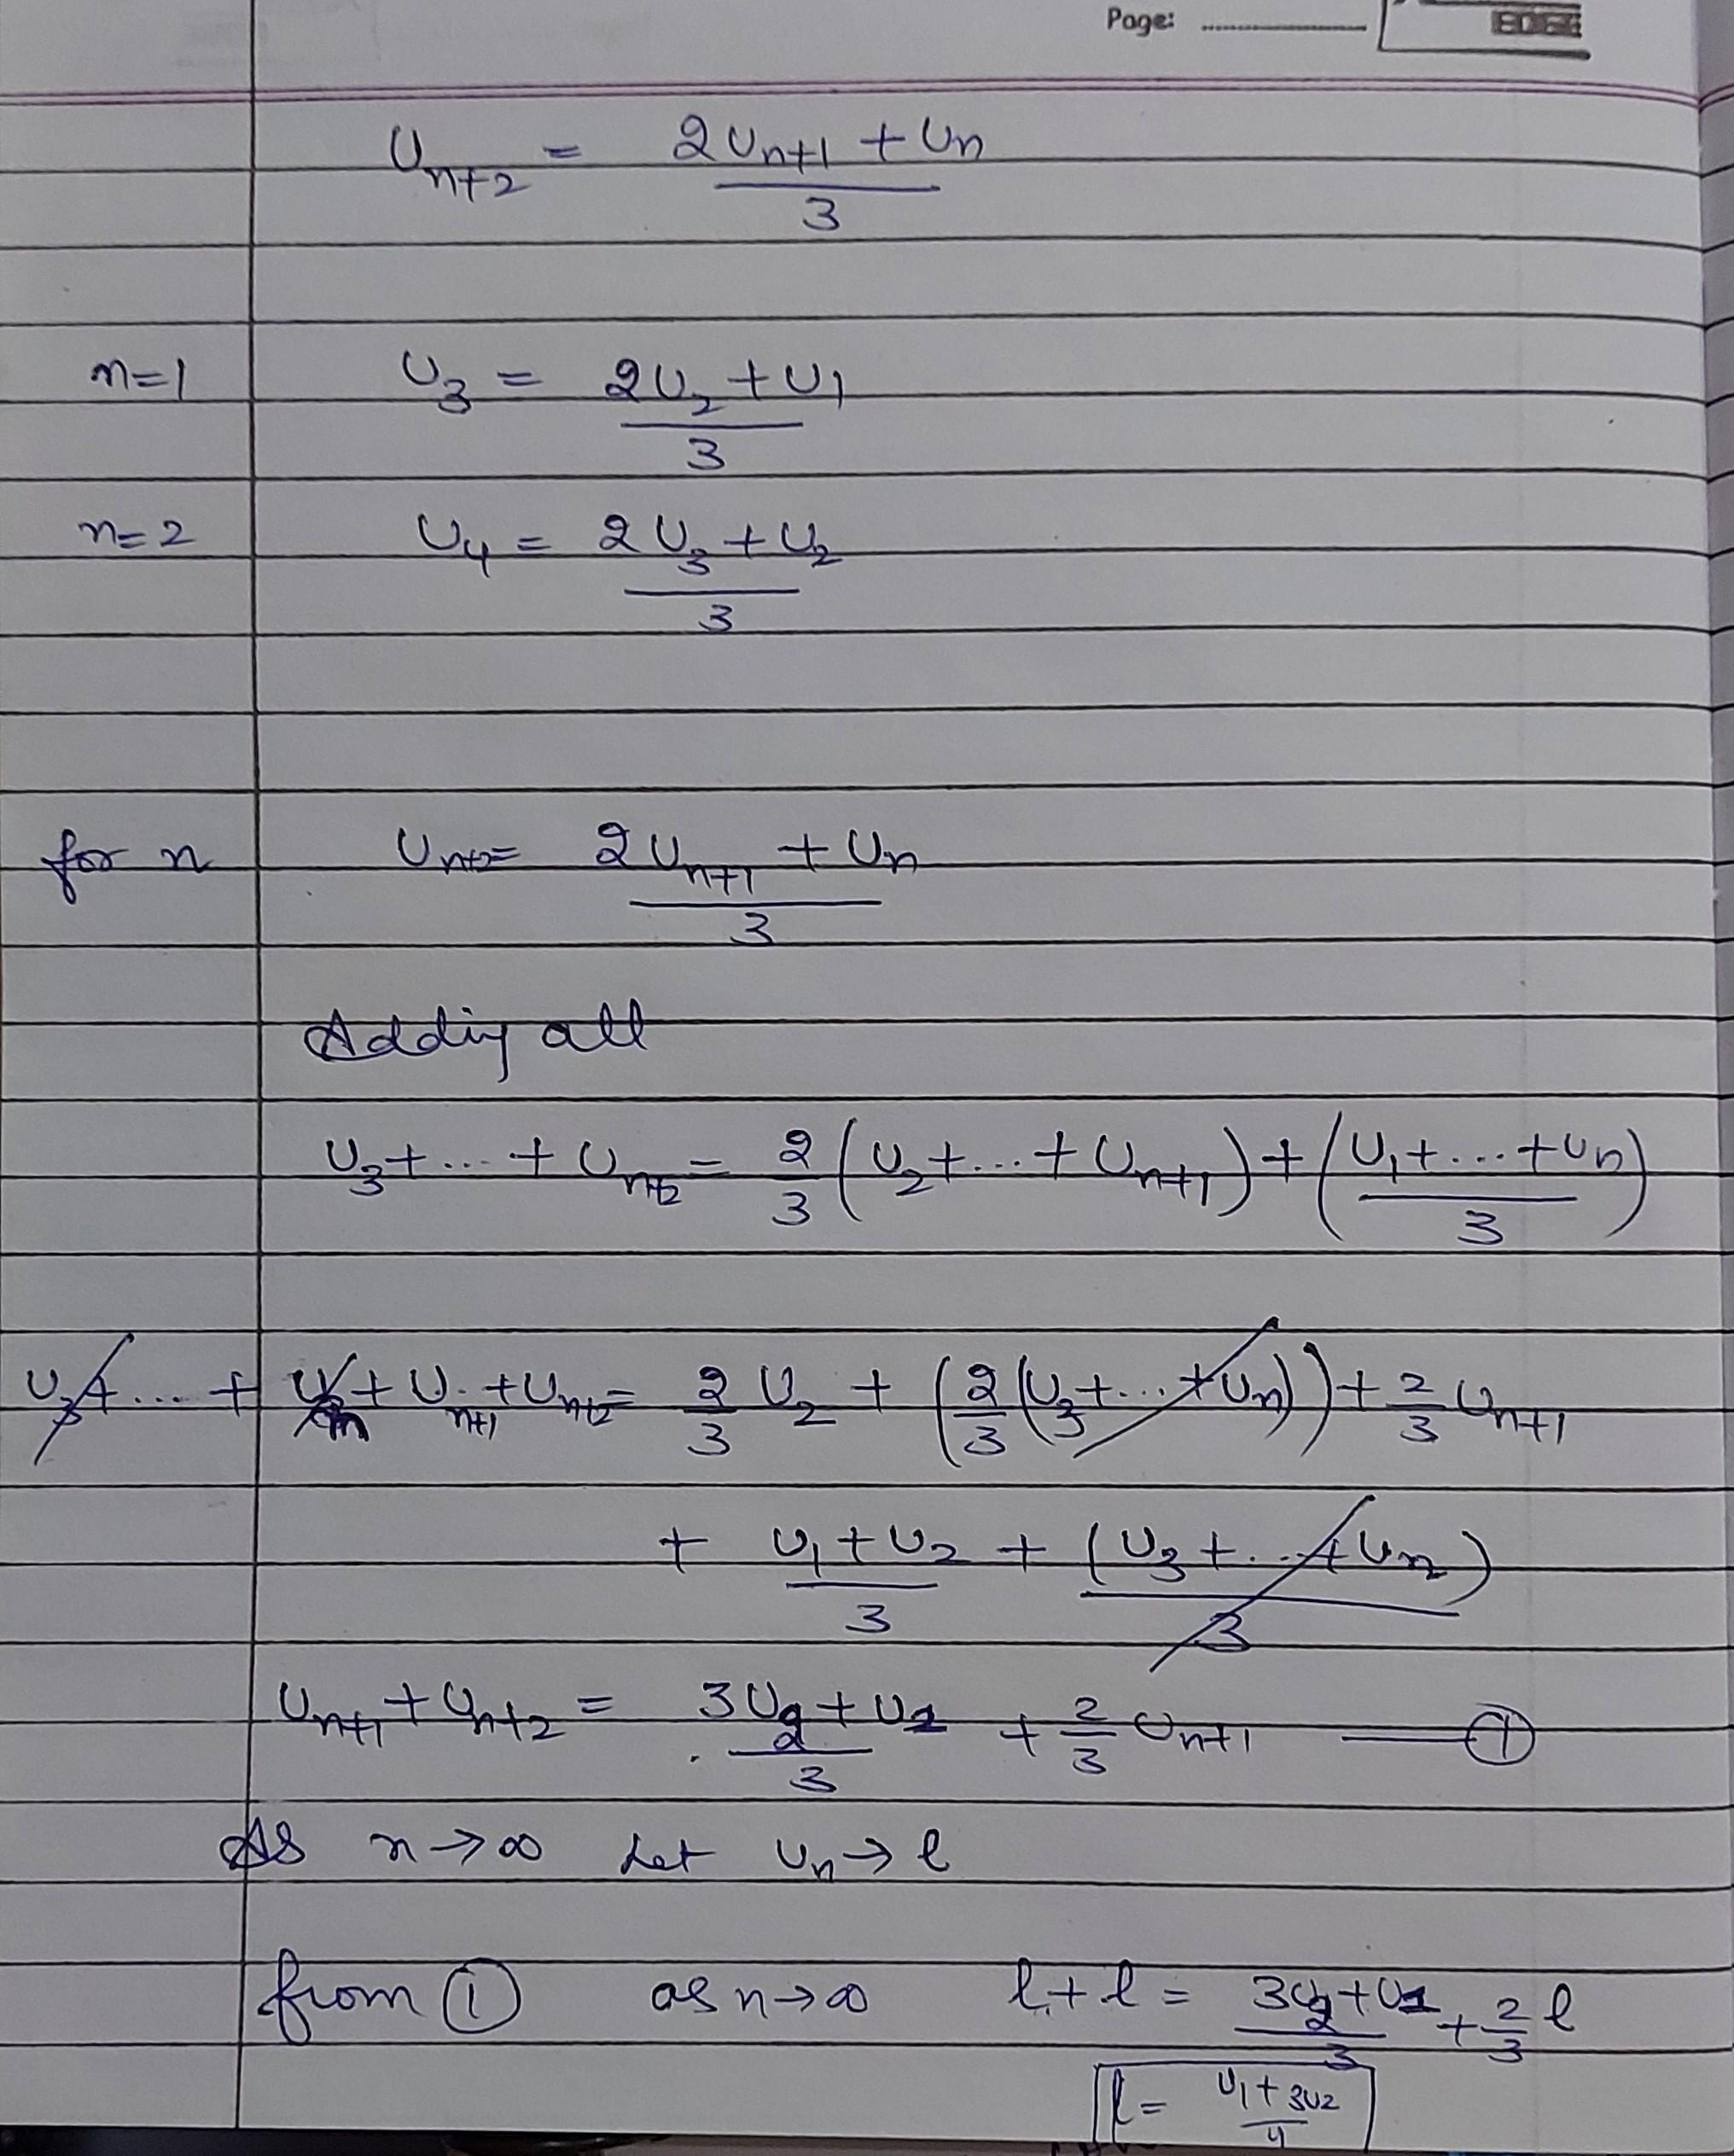 Page: ..............
U_{n+2} = \frac{2U_{n+1} + U_n}{3}
n=1 U_3 = \frac{2U_2 + U_1}{3}
n=2 U_4 = \frac{2U_3 + U_2}{3}
for n U_{n+2} = \frac{2U_{n+1} + U_n}{3}
Adding all
U_3 + ... + U_{n+2} = \frac{2}{3} (U_2 + ... + U_{n+1}) + (\frac{U_1 + ... + U_n}{3})
U_3 + ... + U_n + U_{n+1} + U_{n+2} = \frac{2}{3} U_2 + (\frac{2}{3} (U_3 + ... + U_n)) + \frac{2}{3} U_{n+1}
+ \frac{U_1 + U_2}{3} + \frac{(U_3 + ... + U_n)}{3}
U_{n+1} + U_{n+2} = \frac{3U_2 + U_1}{3} + \frac{2}{3} U_{n+1} —— ①
As n → ∞ Let U_n → l
from ① as n → ∞ l + l = \frac{3U_2 + U_1}{3} + \frac{2}{3} l
l = \frac{U_1 + 3U_2}{4}